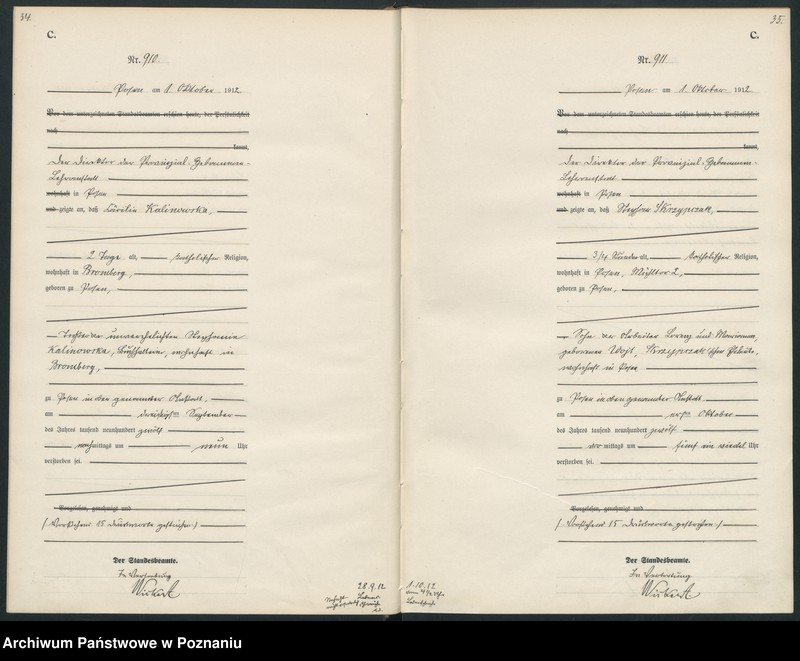 34.
C.
Nr. 910.
Posen am 1. Oktober 1912
Vor dem unterzeichneten Standesbeamten erschien heute, der Persönlichkeit
nach
kannt,
Der Direktor der Provinzial-Hebammen-
Lehranstalt
wohnhaft in Posen
und zeigte an, daß Cäcilie Kalinowska,
2 Tage alt, katholischer Religion,
wohnhaft in Bromberg,
geboren zu Posen,
Tochter der unverehelichten Stephanie
Kalinowska, Buchhalterin, wohnhaft in
Bromberg,
zu Posen in oben genannter Anstalt
am dreißigsten September
des Jahres tausend neunhundert zwölf
nachmittags um neun Uhr
verstorben sei.
Vorgelesen, genehmigt und
(Vorstehend 15 Druckworte gestrichen.)
Der Standesbeamte.
In Vertretung
28.9.12
35.
C.
Nr. 911.
Posen am 1. Oktober 1912
Vor dem unterzeichneten Standesbeamten erschien heute, der Persönlichkeit
nach
kannt,
Der Direktor der Provinzial-Hebammen-
Lehranstalt
wohnhaft in Posen
und zeigte an, daß Stephan Skrzypczak,
3/4 Stunden alt, katholischer Religion,
wohnhaft in Posen, Mühltor 2,
geboren zu Posen,
Sohn der Arbeiter Lorenz und Marianna,
geborenen Wojt, Skrzypczak'schen Eheleute,
wohnhaft in Posen
zu Posen in oben genannter Anstalt
am ersten Oktober
des Jahres tausend neunhundert zwölf
vormittags um fünf ein viertel Uhr
verstorben sei.
Vorgelesen, genehmigt und
(Vorstehend 15 Druckworte gestrichen.)
Der Standesbeamte.
In Vertretung
1.10.12
Archiwum Państwowe w Poznaniu